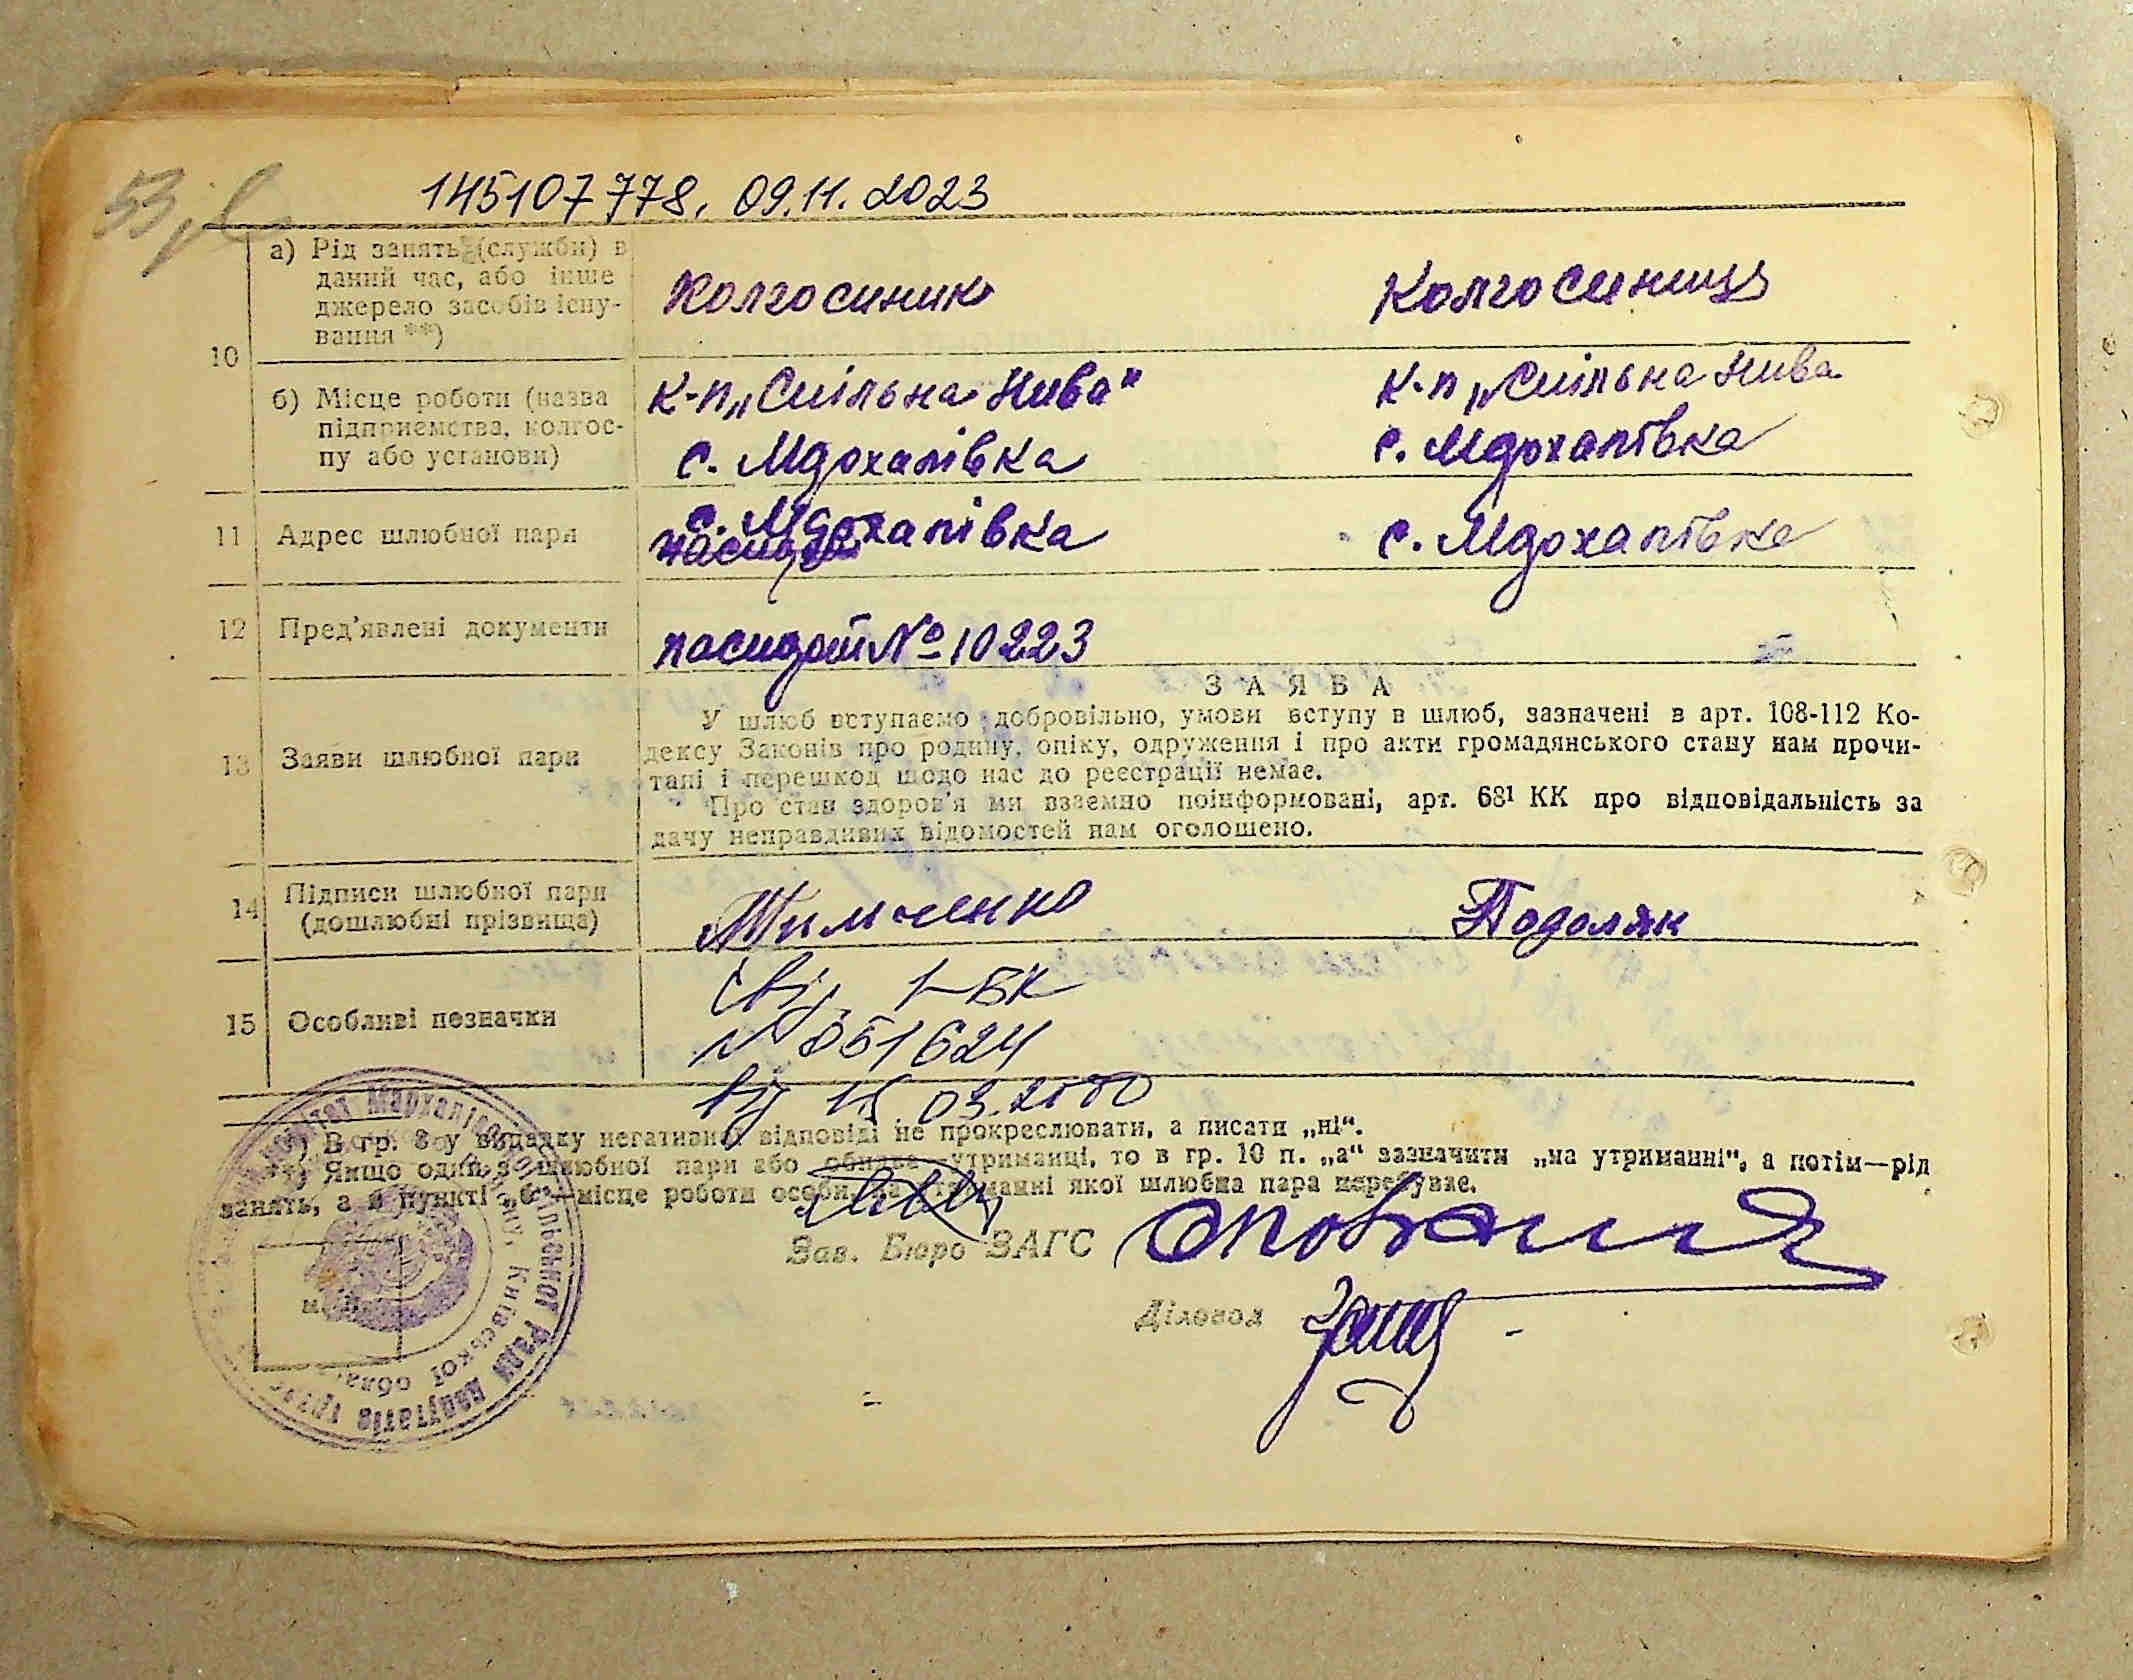 53
145107778, 09.11.2023
10
а) Рід занять (служби) в
даний час, або інше
джерело засобів існу-
вання **)
Колгоспник
Колгоспниця
б) Місце роботи (назва
підприємства, колгос-
пу або установи)
к-п „Спільна Нива"
с. Мдохалівка
к-п „Спільна Нива
с. Мдохалівка
11
Адрес шлюбної пари
с. Мдохалівка
с. Мдохалівка
12
Пред'явлені документи
паспорт № 10223
13
Заяви шлюбної пари
ЗАЯВА
У шлюб вступаємо добровільно, умови вступу в шлюб, зазначені в арт. 108-112 Ко-
дексу Законів про родину, опіку, одруження і про акти громадянського стану нам прочи-
тані і перешкод щодо нас до реєстрації немає.
Про стан здоров'я ми взаємно поінформовані, арт. 68¹ КК про відповідальність за
дачу неправдивих відомостей нам оголошено.
14
Підписи шлюбної пари
(дошлюбні прізвища)
Тимченко
Подоляк
15
Особливі позначки
Свід. 1-БК
№ 051624
від 03.2000
*) В гр. 8 у випадку негативної відповіді не прокреслювати, а писати „ні".
**) Якщо один з шлюбної пари або обидва—утриманці, то в гр. 10 п. „а" зазначити „на утриманні", а потім—рід
занять, а в пункті „б"—місце роботи особи, на утриманні якої шлюбна пара перебуває.
Зав. Бюро ЗАГС
Діловод
м. п.
сільської ради депутатів
Київської